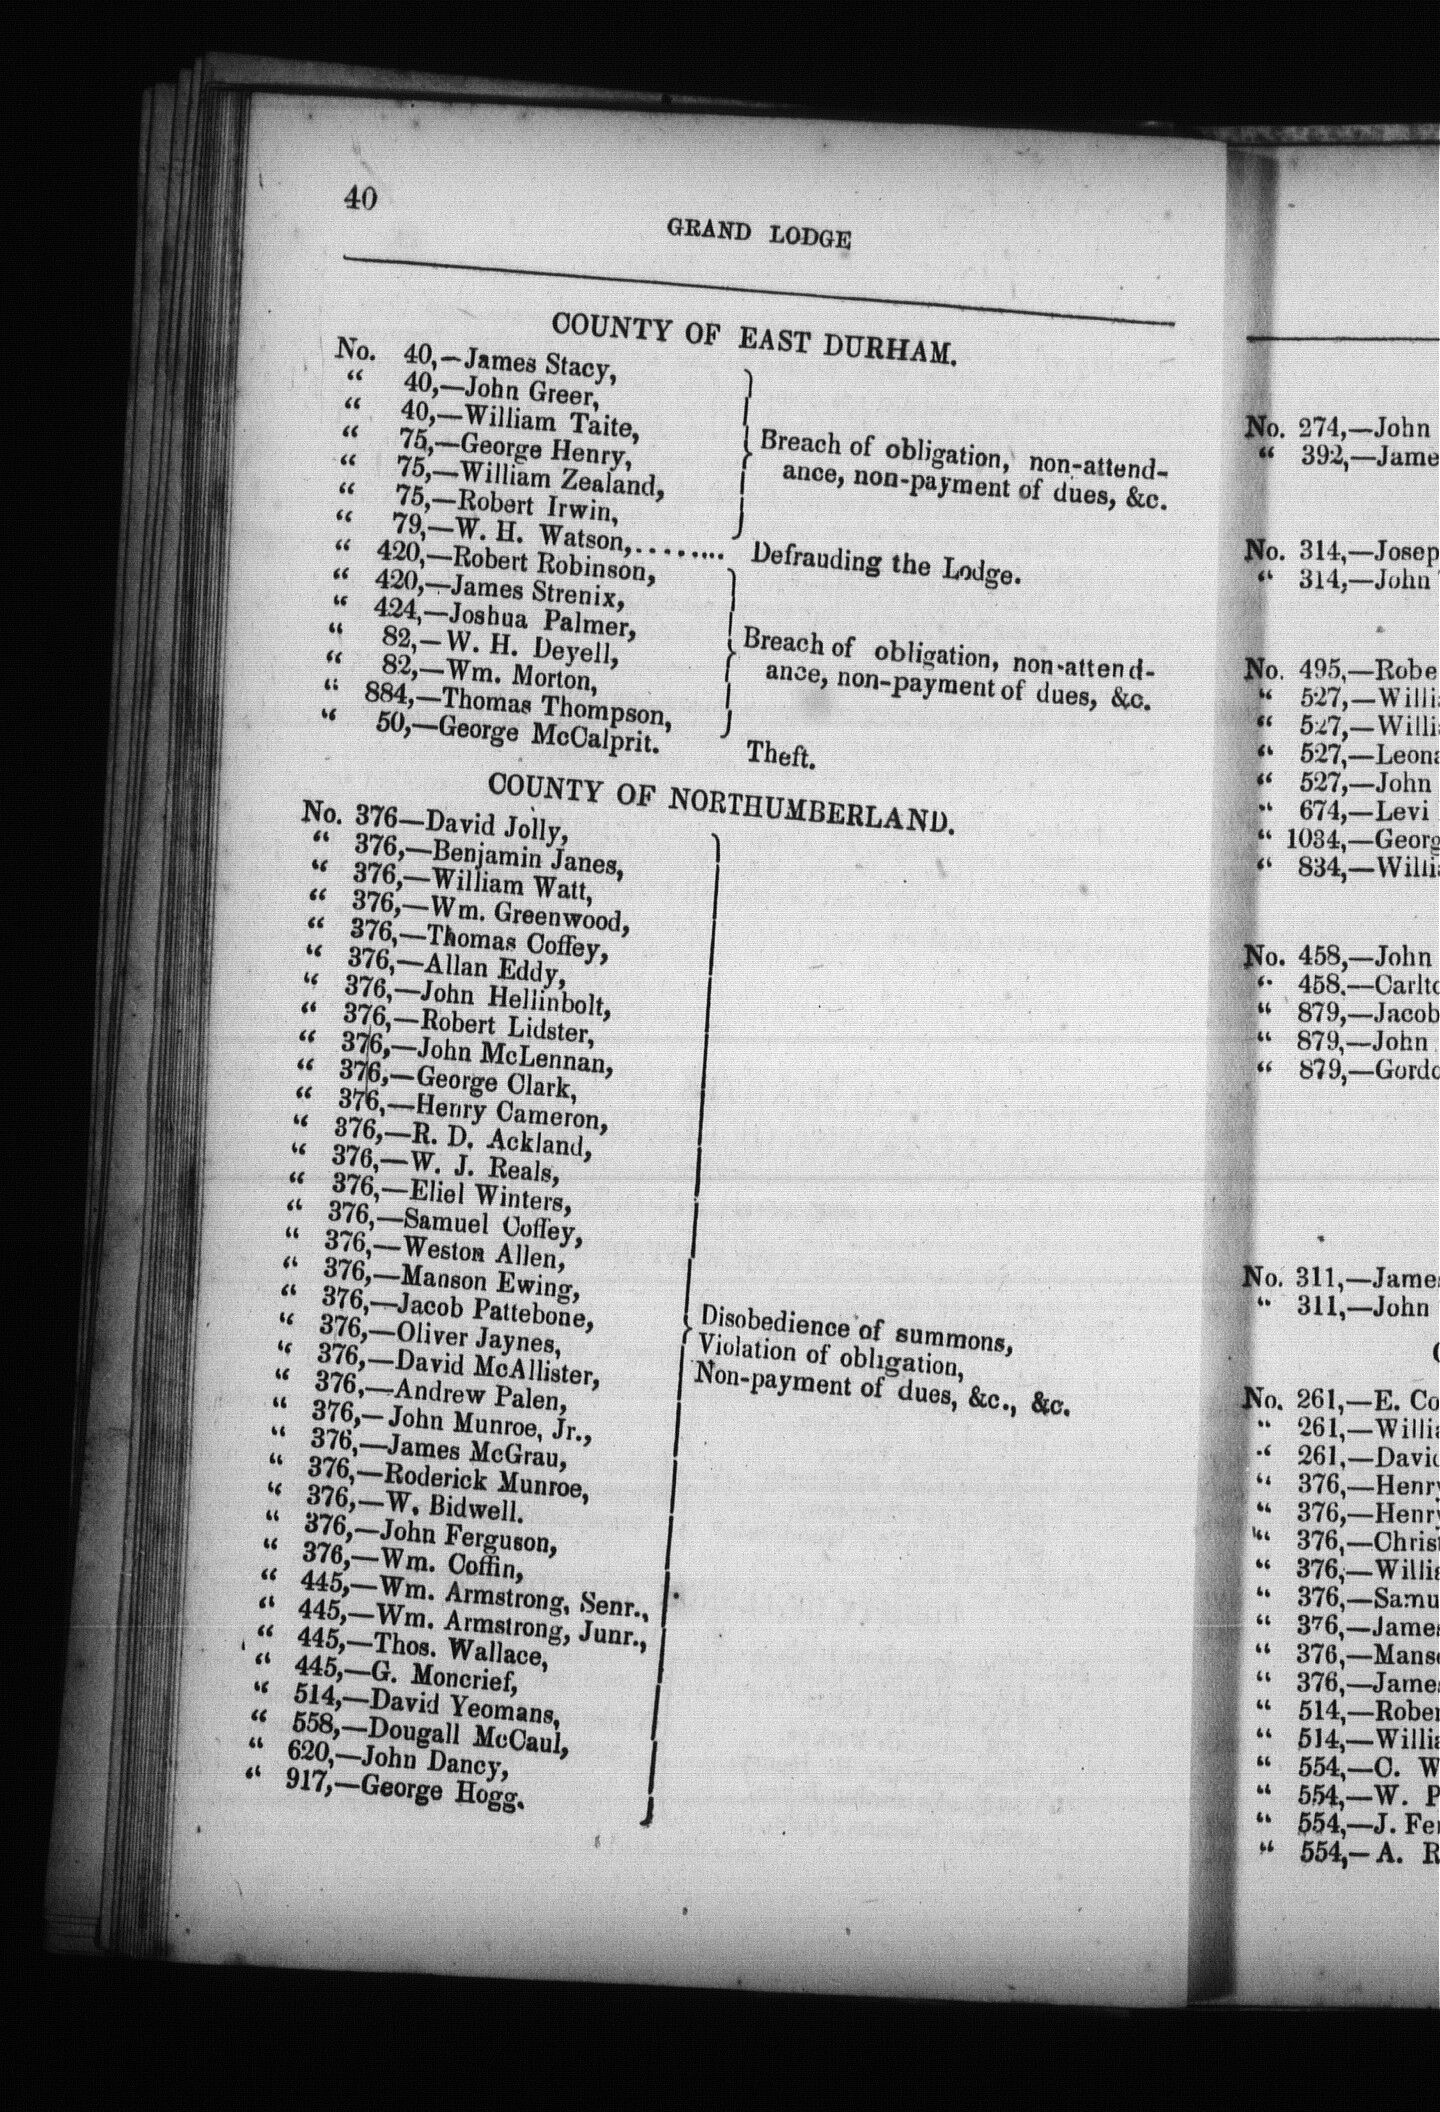 40
GRAND LODGE
COUNTY OF EAST DURHAM.
No. 40,—James Stacy,
“ 40,—John Greer,
“ 40,—William Taite,
“ 75,—George Henry,
“ 75,—William Zealand,
“ 75,—Robert Irwin,
Breach of obligation, non-attend-
ance, non-payment of dues, &c.
“ 79,—W. H. Watson,........ Defrauding the Lodge.
“ 420,—Robert Robinson,
“ 420,—James Strenix,
“ 424,—Joshua Palmer,
“ 82,—W. H. Deyell,
“ 82,—Wm. Morton,
“ 884,—Thomas Thompson,
Breach of obligation, non-attend-
ance, non-payment of dues, &c.
“ 50,—George McCalprit. Theft.
COUNTY OF NORTHUMBERLAND.
No. 376—David Jolly,
“ 376,—Benjamin Janes,
“ 376,—William Watt,
“ 376,—Wm. Greenwood,
“ 376,—Thomas Coffey,
“ 376,—Allan Eddy,
“ 376,—John Hellinbolt,
“ 376,—Robert Lidster,
“ 376,—John McLennan,
“ 376,—George Clark,
“ 376,—Henry Cameron,
“ 376,—R. D. Ackland,
“ 376,—W. J. Reals,
“ 376,—Eliel Winters,
“ 376,—Samuel Coffey,
“ 376,—Weston Allen,
“ 376,—Manson Ewing,
“ 376,—Jacob Pattebone,
“ 376,—Oliver Jaynes,
“ 376,—David McAllister,
“ 376,—Andrew Palen,
“ 376,—John Munroe, Jr.,
“ 376,—James McGrau,
“ 376,—Roderick Munroe,
“ 376,—W. Bidwell.
“ 376,—John Ferguson,
“ 376,—Wm. Coffin,
“ 445,—Wm. Armstrong, Senr.,
“ 445,—Wm. Armstrong, Junr.,
“ 445,—Thos. Wallace,
“ 445,—G. Moncrief,
“ 514,—David Yeomans,
“ 558,—Dougall McCaul,
“ 620,—John Dancy,
“ 917,—George Hogg.
Disobedience of summons,
Violation of obligation,
Non-payment of dues, &c., &c.
No. 274,—John
“ 392,—Jame
No. 314,—Josep
“ 314,—John
No. 495,—Robe
“ 527,—Willia
“ 527,—Willi
“ 527,—Leona
“ 527,—John
“ 674,—Levi
“ 1034,—Georg
“ 834,—Willi
No. 458,—John
“ 458.—Carlto
“ 879,—Jacob
“ 879,—John
“ 879,—Gordo
No. 311,—James
“ 311,—John
No. 261,—E. Co
“ 261,—Willia
“ 261,—David
“ 376,—Henry
“ 376,—Henry
“ 376,—Christ
“ 376,—Willia
“ 376,—Samu
“ 376,—James
“ 376,—Manso
“ 376,—James
“ 514,—Rober
“ 514,—Willia
“ 554,—C. W
“ 554,—W. P
“ 554,—J. Fer
“ 554,—A. R